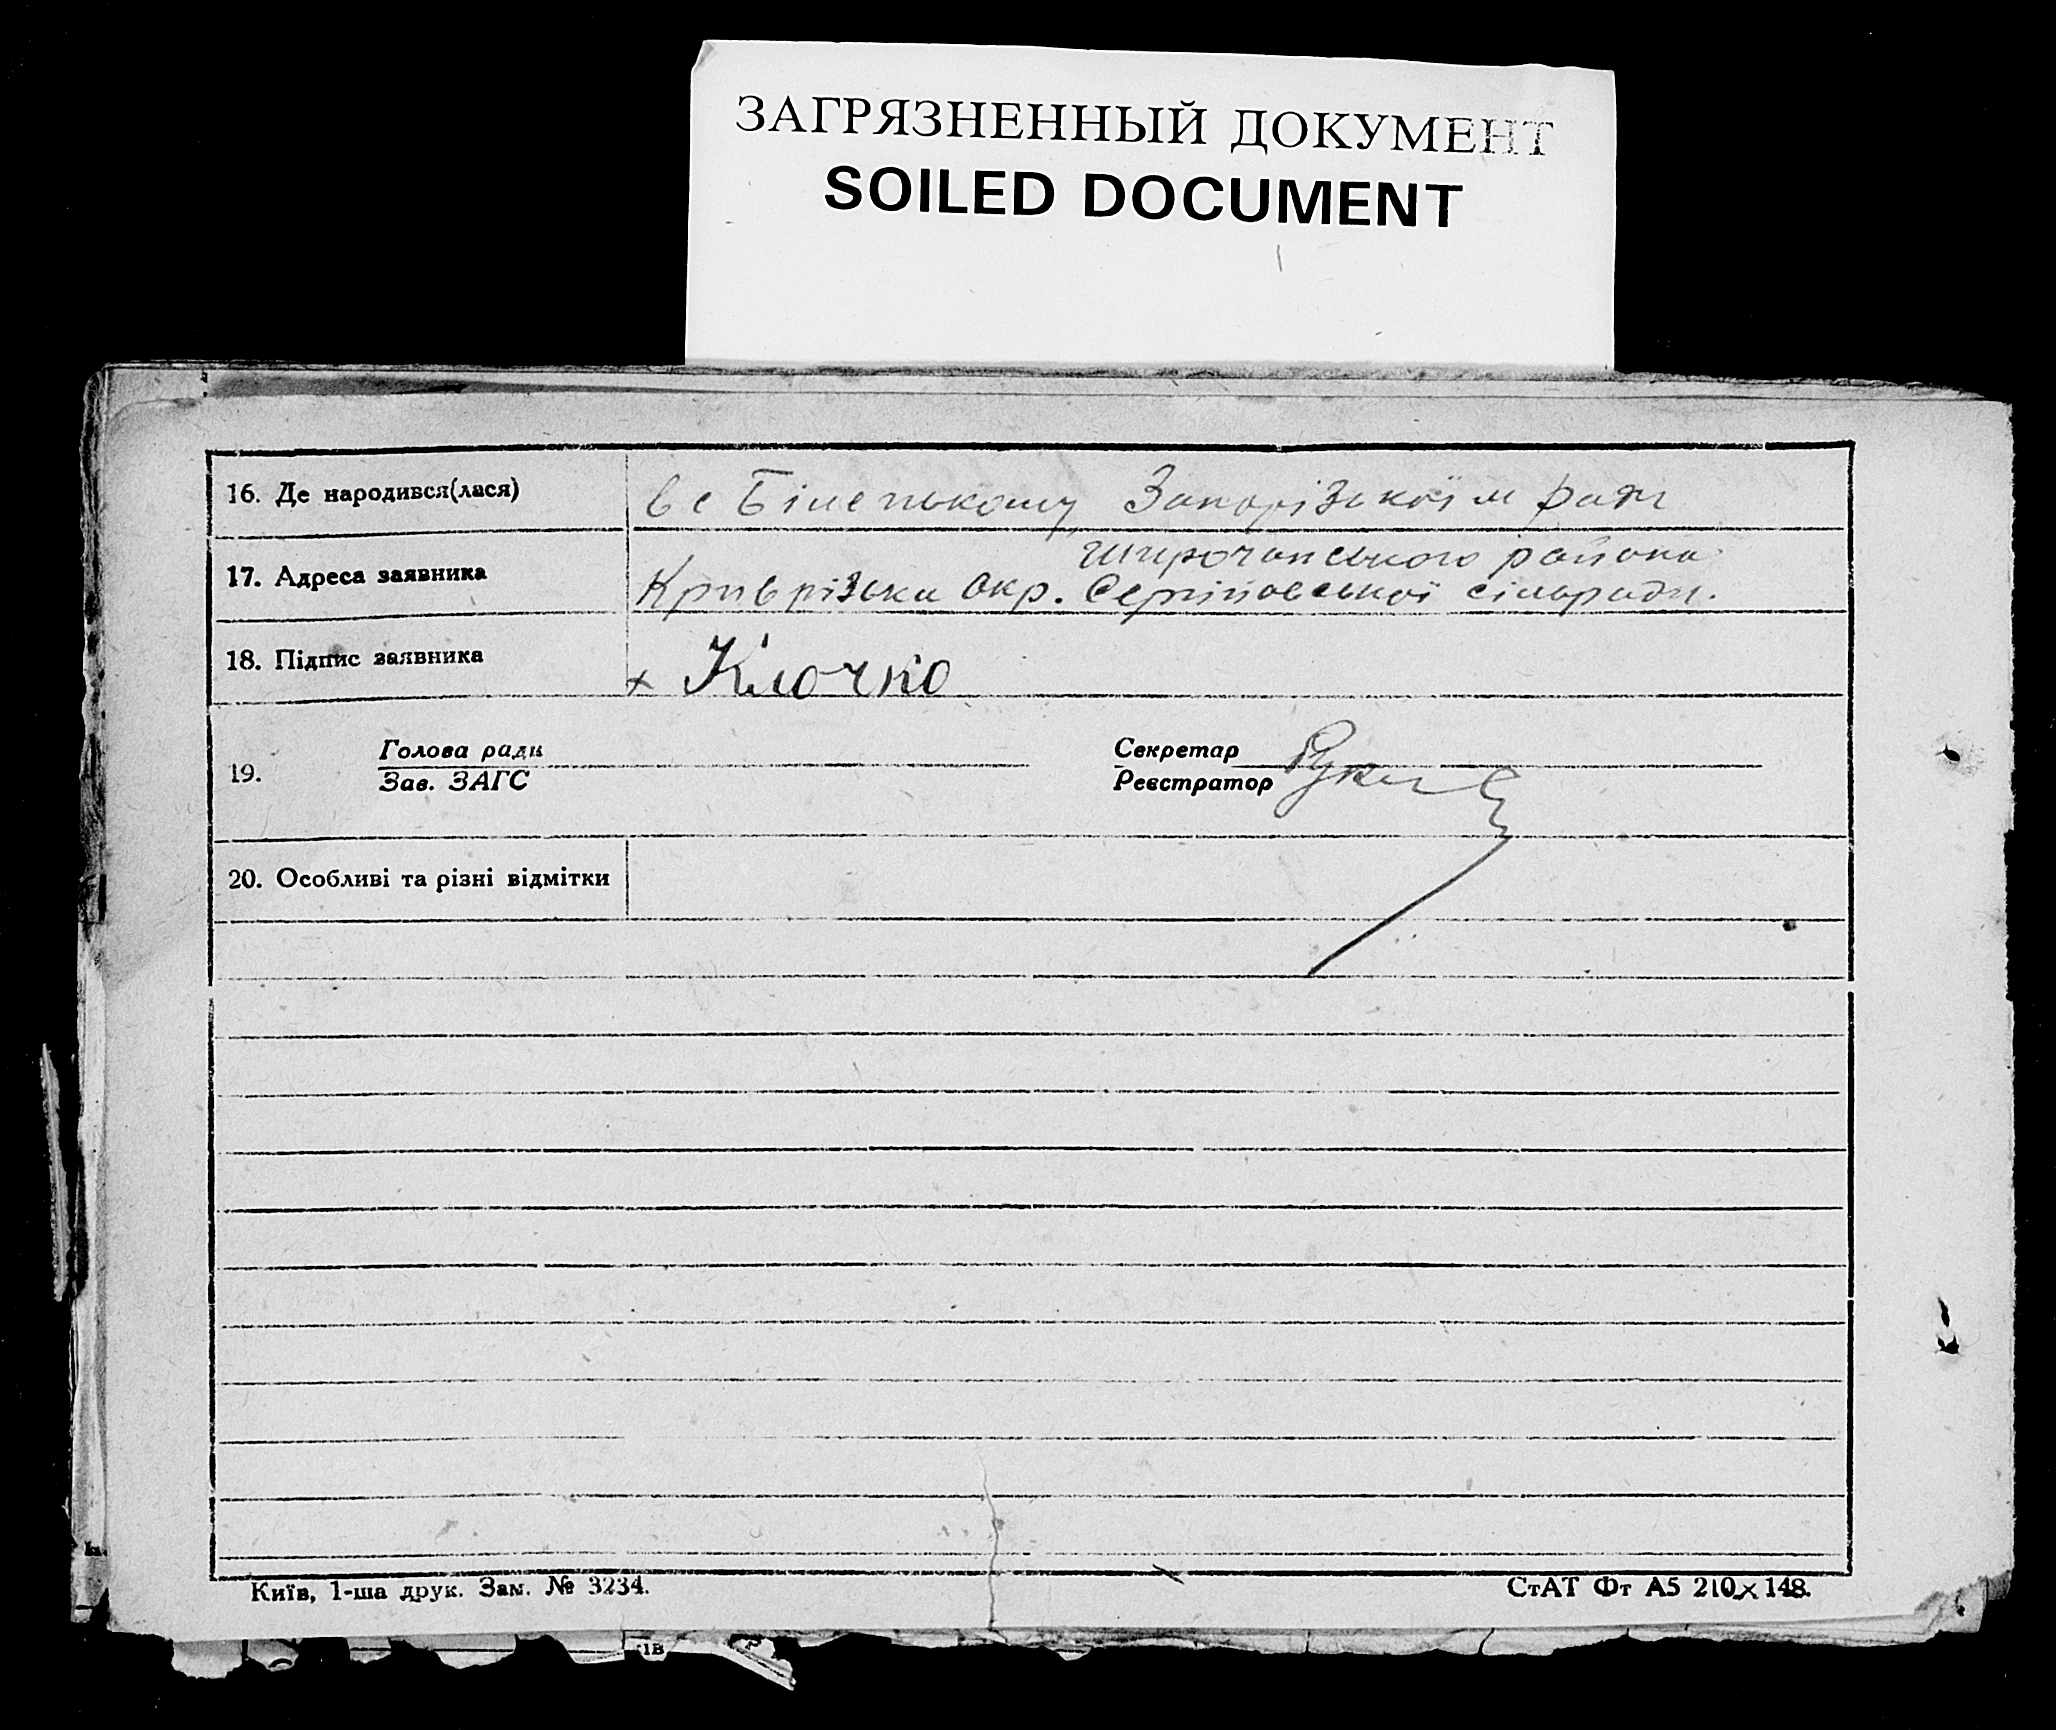 ЗАГРЯЗНЕННЫЙ ДОКУМЕНТ
SOILED DOCUMENT
16. Де народився(лася) в с Біленькому Запорізької м ради
17. Адреса заявника Широчанського района
Криврізька окр. Сергіївської сільради.
18. Підпис заявника х Клочко
19. Голова ради Секретар
Зав. ЗАГС Реєстратор
20. Особливі та різні відмітки
Київ, 1-ша друк. Зам. № 3234. СтАТ Фт А5 210×148.